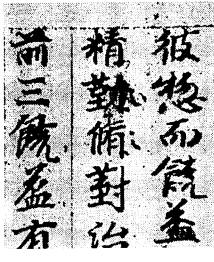 彼惣而饒益
精勤脩對治
前三饒益有